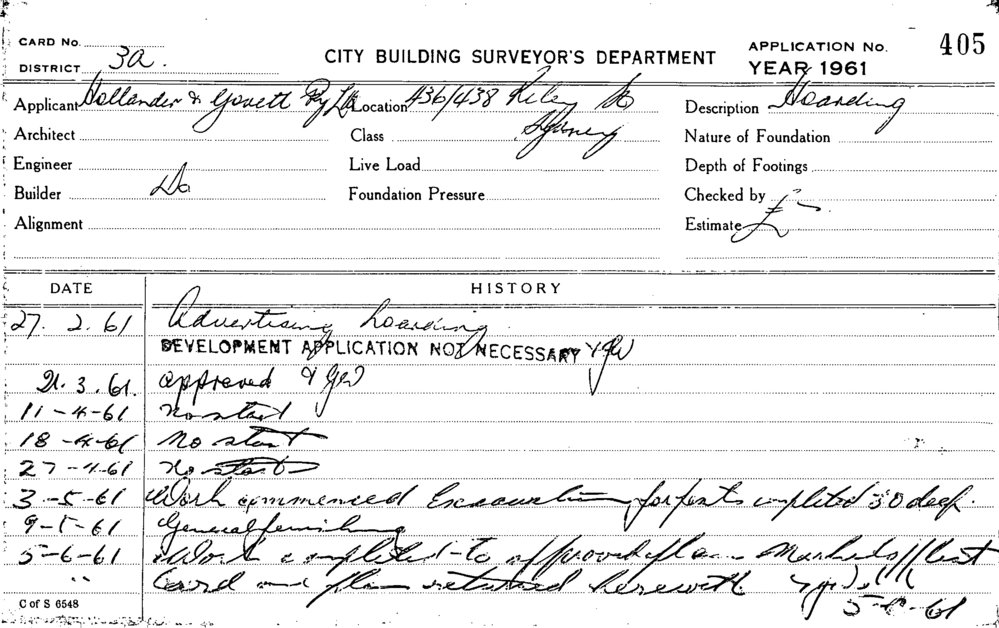 CARD No.
DISTRICT 3a.
CITY BUILDING SURVEYOR'S DEPARTMENT
APPLICATION No. 405
YEAR 1961
Applicant Hollander & Govett Pty Ltd Location 436/438 Riley St
Sydney
Description Hoarding
Architect
Class
Nature of Foundation
Engineer
Live Load
Depth of Footings
Builder Do
Foundation Pressure
Checked by
Alignment
Estimate £ -
DATE HISTORY
27. 2. 61 Advertising hoarding.
DEVELOPMENT APPLICATION NOT NECESSARY
21. 3. 61. approved
11-4-61 No start
18-4-61 No start
27-4-61 No start
3-5-61 Work commenced Excavation for posts completed 3'0 deep.
9-5-61 General
5-6-61 Work completed to approved plan Marked off list
" Card and plan returned herewith
5-6-61
C of S 6548